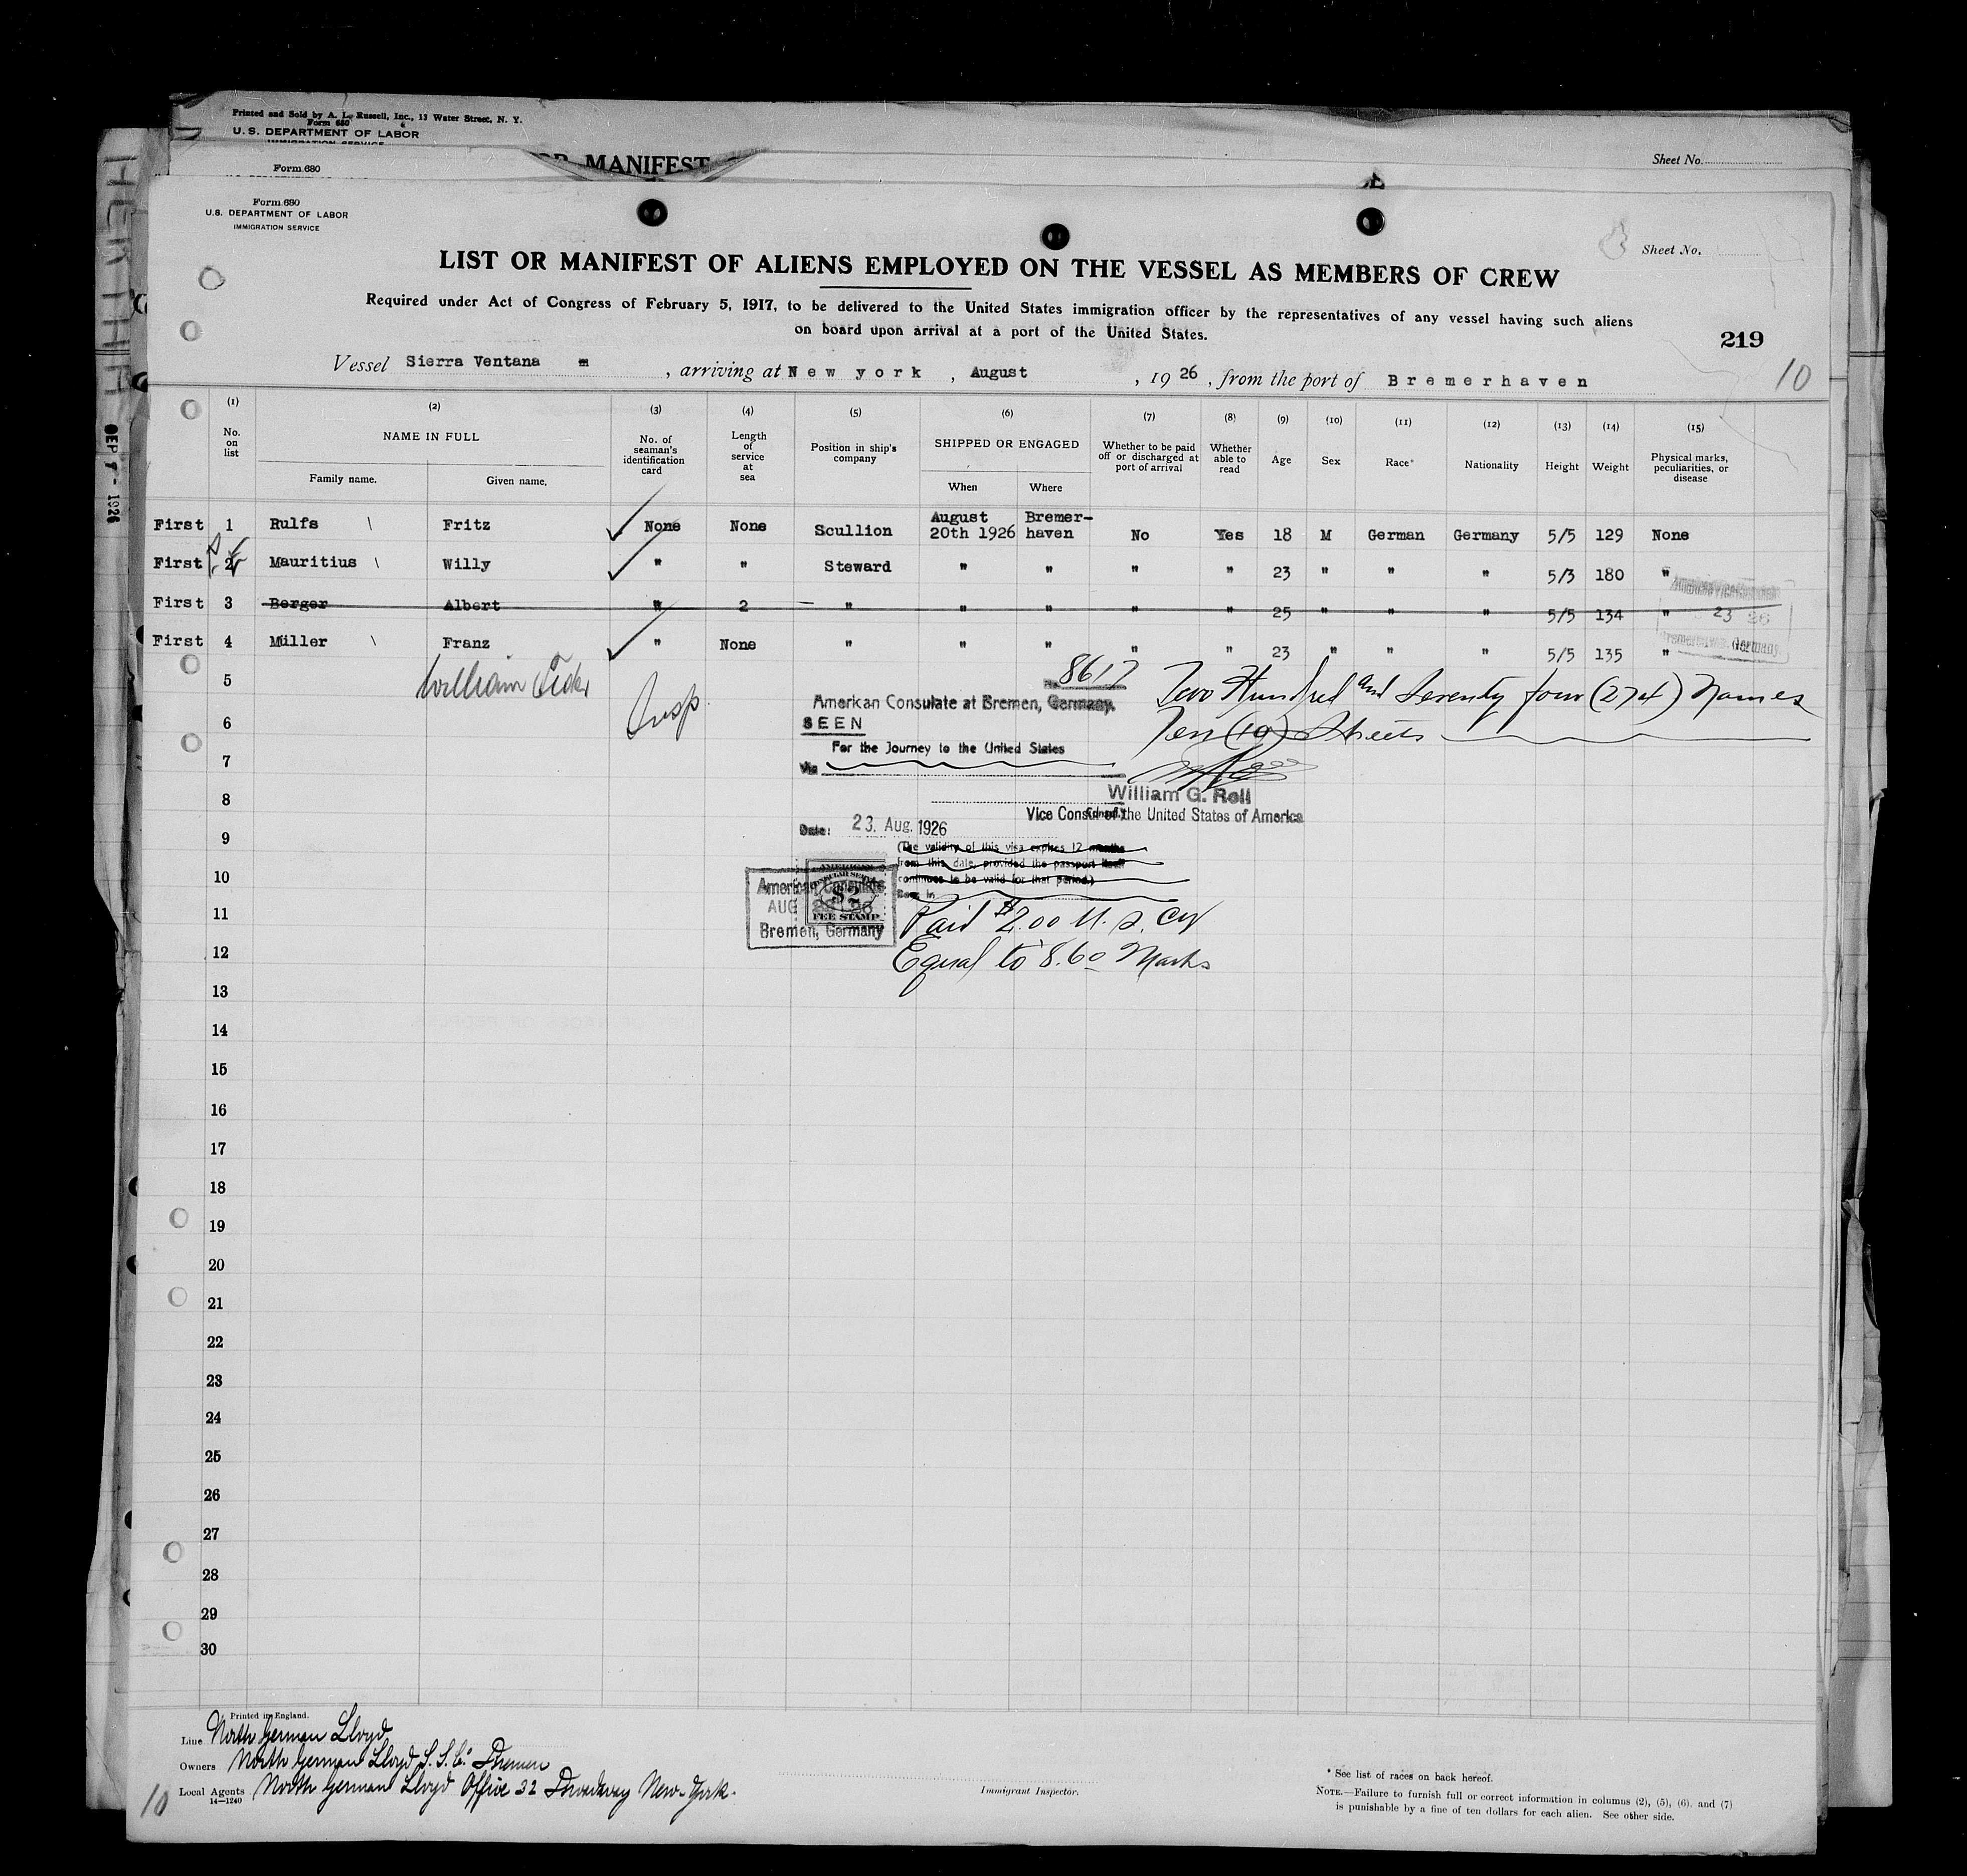 Printed and Sold by A. L. Russell, Inc., 13 Water Street, N. Y.
Form 680
U. S. DEPARTMENT OF LABOR
IMMIGRATION SERVICE
Form 680
OR MANIFEST
Sheet No.
Form 680
U.S. DEPARTMENT OF LABOR
IMMIGRATION SERVICE
Sheet No.
LIST OR MANIFEST OF ALIENS EMPLOYED ON THE VESSEL AS MEMBERS OF CREW
Required under Act of Congress of February 5, 1917, to be delivered to the United States immigration officer by the representatives of any vessel having such aliens
on board upon arrival at a port of the United States.
219
Vessel Sierra Ventana m , arriving at New york , August , 1926 , from the port of Bremerhaven
10
(1) (2) (3) (4) (5) (6) (7) (8) (9) (10) (11) (12) (13) (14) (15)
No. on list NAME IN FULL Family name. Given name. No. of seaman's identification card Length of service at sea Position in ship's company SHIPPED OR ENGAGED When Where Whether to be paid off or discharged at port of arrival Whether able to read Age Sex Race* Nationality Height Weight Physical marks, peculiarities, or disease
First 1 Rulfs \ Fritz None None Scullion August 20th 1926 Bremer-haven No Yes 18 M German Germany 5/5 129 None
First 2 Mauritius \ Willy " " Steward " " " " 23 " " " 5/3 180 "
First 3 Berger Albert " 2 " " " " " 25 " " " 5/5 134 "
First 4 Müller \ Franz " None " " " " " 23 " " " 5/5 135 "
23 26
Bremerhaven, Germany.
5
William
Insp.
No. 8617
Two Hundred and Seventy four (274) Names
American Consulate at Bremen, Germany.
SEEN
Ten (10) Sheets
6
For the Journey to the United States
7
Via
William G. Roll
8
Vice Consul of the United States of America
Date: 23. Aug. 1926
9
(The validity of this visa expires 12 months
from this date, provided the passport itself
continues to be valid for that period.)
10
American Consulate
AUG 23 1926
Bremen, Germany
AMERICAN
CONSULAR SERVICE
$2
FEE STAMP
11
Paid $2.00 U.S. Cy
12
Equal to 8.60 Marks
13
14
15
16
17
18
19
20
21
22
23
24
25
26
27
28
29
30
Printed in England.
Line North German Lloyd
Owners North German Lloyd S. S. Co. Bremen
Local Agents North German Lloyd Office 32 Broadway New-York.
14—1240
10
Immigrant Inspector.
* See list of races on back hereof.
NOTE.—Failure to furnish full or correct information in columns (2), (5), (6), and (7)
is punishable by a fine of ten dollars for each alien. See other side.
HERTHA
SEP 9 - 1926